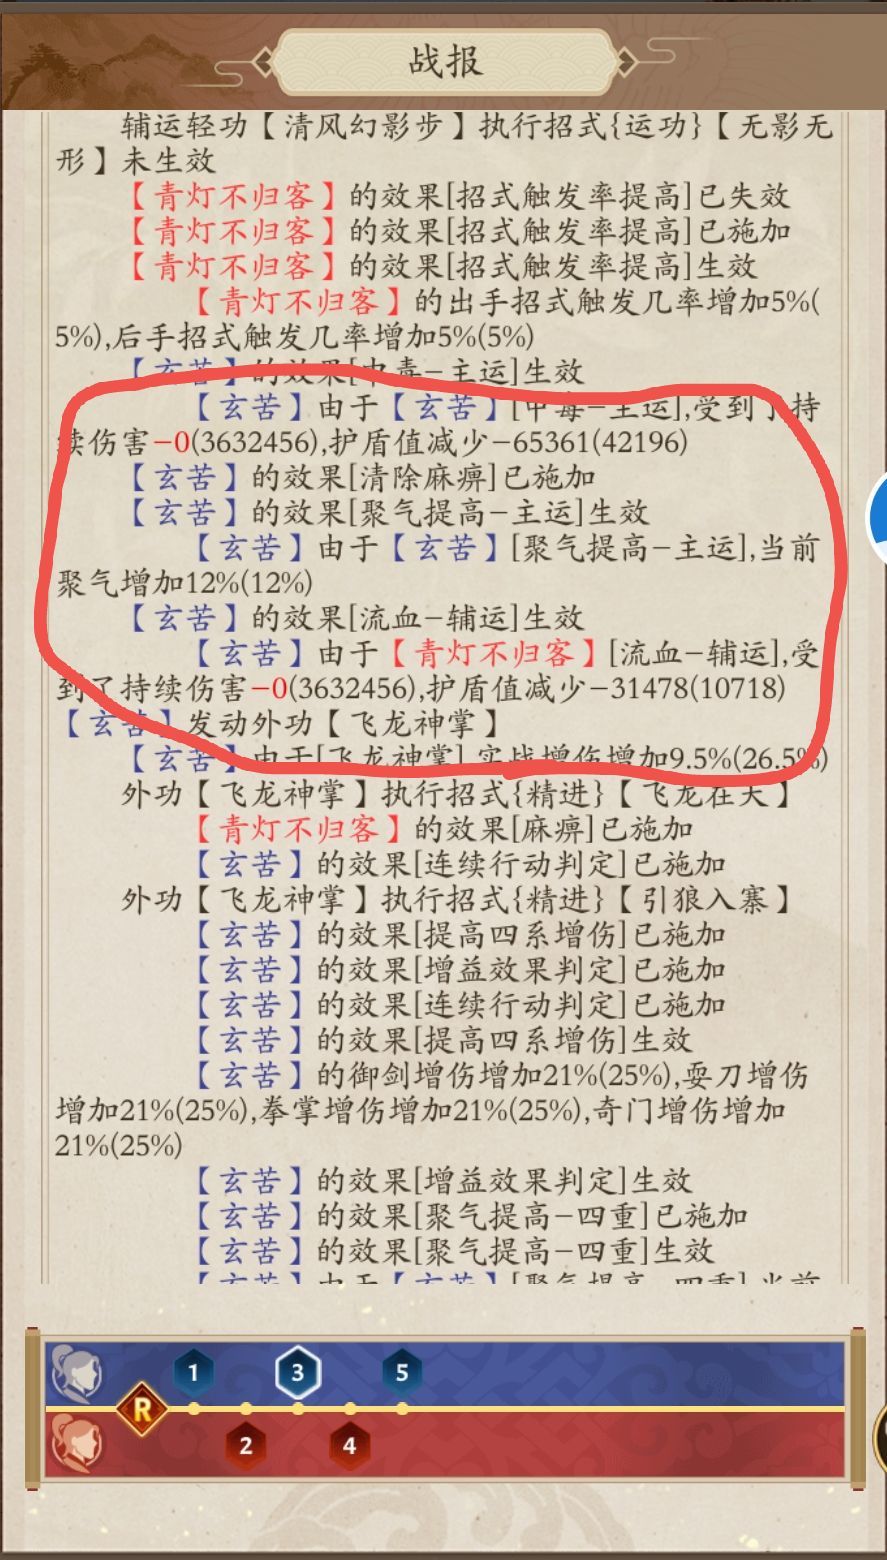 战报
辅运轻功【清风幻影步】执行招式{运功}【无影无
形】未生效
【青灯不归客】的效果[招式触发率提高]已失效
【青灯不归客】的效果[招式触发率提高]已施加
【青灯不归客】的效果[招式触发率提高]生效
【青灯不归客】的出手招式触发几率增加5%(
5%),后手招式触发几率增加5%(5%)
【玄苦】的效果[中毒-主运]生效
【玄苦】由于【玄苦】[中毒-主运],受到了持
续伤害-0(3632456),护盾值减少-65361(42196)
【玄苦】的效果[清除麻痹]已施加
【玄苦】的效果[聚气提高-主运]生效
【玄苦】由于【玄苦】[聚气提高-主运],当前
聚气增加12%(12%)
【玄苦】的效果[流血-辅运]生效
【玄苦】由于【青灯不归客】[流血-辅运],受
到了持续伤害-0(3632456),护盾值减少-31478(10718)
【玄苦】发动外功【飞龙神掌】
【玄苦】由于[飞龙神掌],实战增伤增加9.5%(26.5%)
外功【飞龙神掌】执行招式{精进}【飞龙在天】
【青灯不归客】的效果[麻痹]已施加
【玄苦】的效果[连续行动判定]已施加
外功【飞龙神掌】执行招式{精进}【引狼入寨】
【玄苦】的效果[提高四系增伤]已施加
【玄苦】的效果[增益效果判定]已施加
【玄苦】的效果[连续行动判定]已施加
【玄苦】的效果[提高四系增伤]生效
【玄苦】的御剑增伤增加21%(25%),耍刀增伤
增加21%(25%),拳掌增伤增加21%(25%),奇门增伤增加
21%(25%)
【玄苦】的效果[增益效果判定]生效
【玄苦】的效果[聚气提高-四重]已施加
【玄苦】的效果[聚气提高-四重]生效
【玄苦】由于【玄苦】[聚气提高-四重],当前
1
3
5
R
2
4